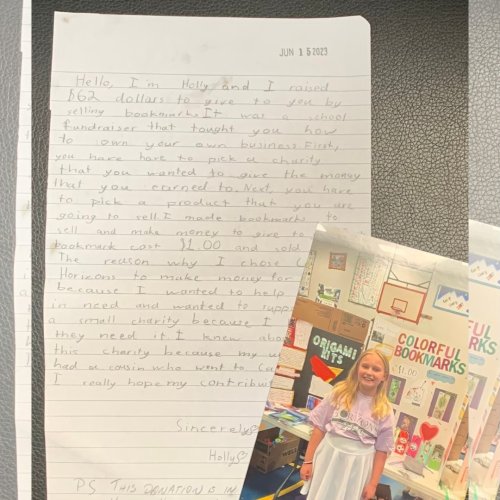 JUN 1 5 2023
Hello, I'm Holly and I raised
$62 dollars to give to you by
selling bookmarks. It was a school
fundraiser that tought you how
to own your own business. First,
you have have to pick a charity
that you wanted to give the money
that you earned to. Next, you have
to pick a product that you are
going to sell. I made bookmarks to
sell and make money to give to
bookmark cost $1.00 and sold
The reason why I chose
Horizons to make money for
because I wanted to help
in need and wanted to
a small charity because I
they need it. I knew
this charity because my
had a cousin who went to
I really hope my
Sincerely
Holly
PS THIS DONATION IS IN
ORIGAMI
KITS
COLORFUL
BOOKMARKS
$1.00
COLORFUL
BOOKMARKS
$1.00